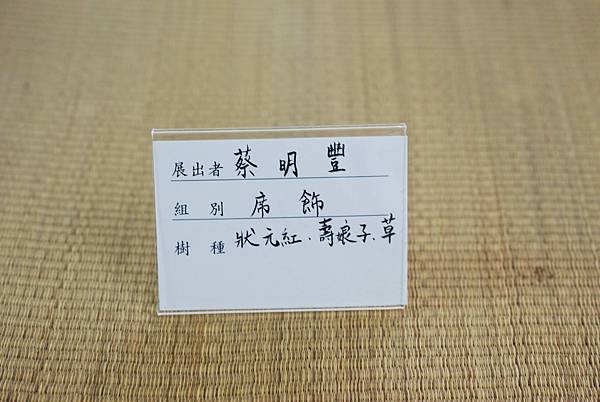 展出者 蔡明豐
組別 席飾
樹種 狀元紅、壽娘子、草